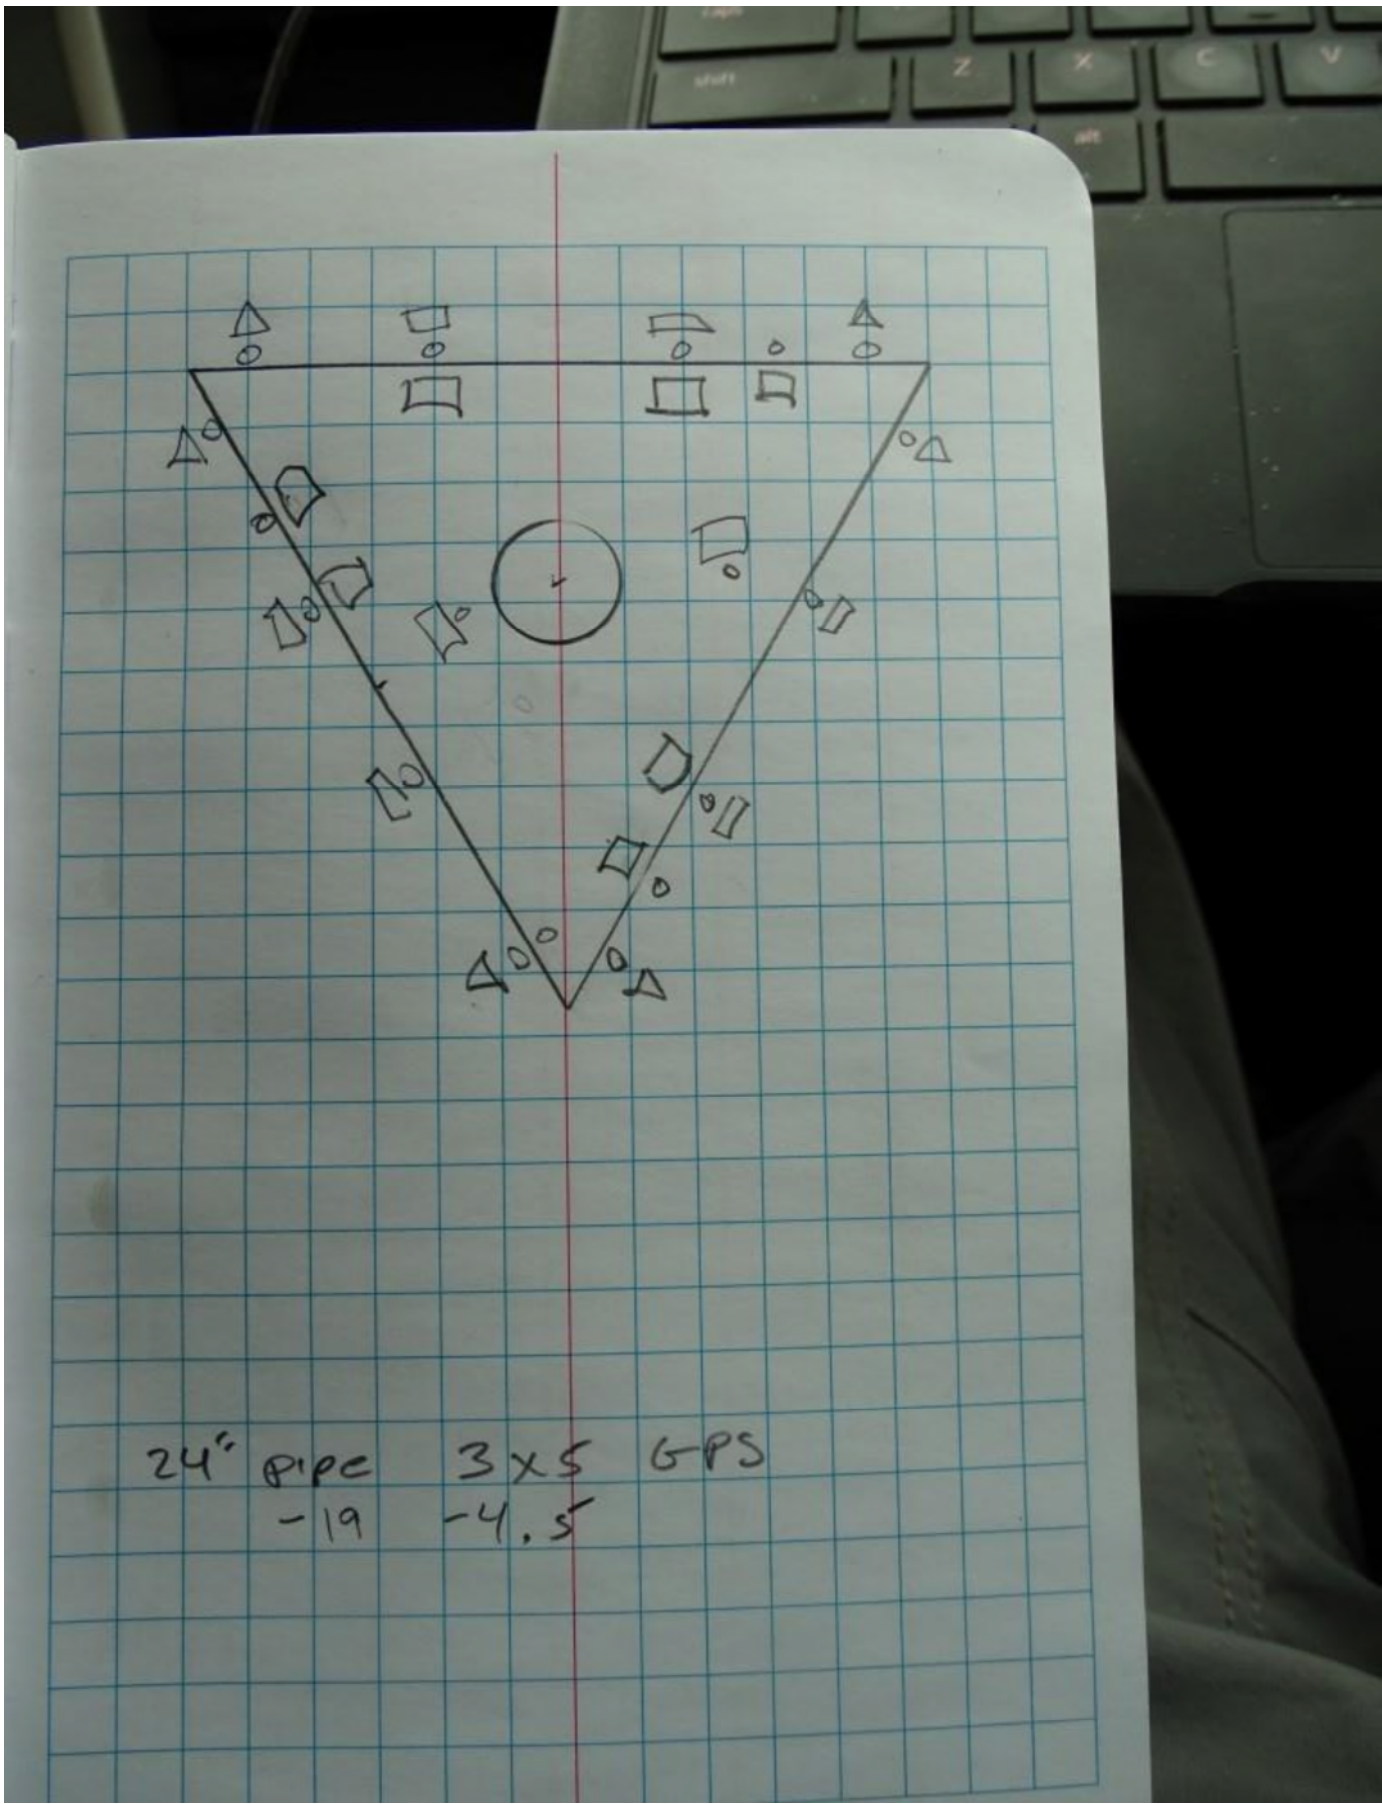 caps
shift Z X C V
alt
24" pipe 3x5 GPS
-19 -4.5